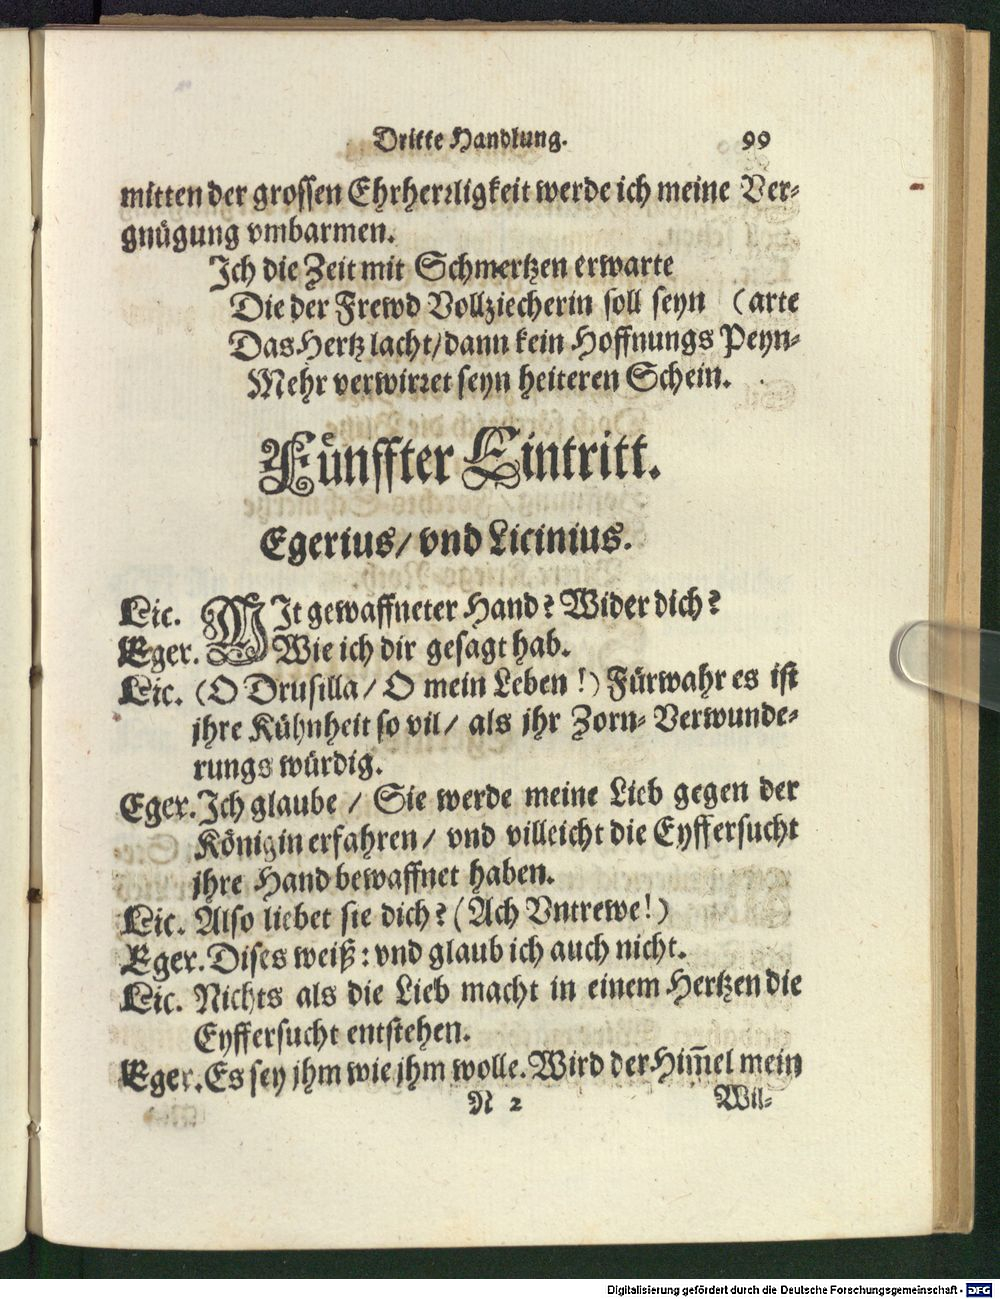 Dritte Handlung. 99
mitten der grossen Ehrherꝛligkeit werde ich meine Ver-
gnügung vmbarmen.
Ich die Zeit mit Schmertzen erwarte
Die der Frewd Vollziecherin soll seyn (arte
Das Hertz lacht/dann kein Hoffnungs Peyn-
Mehr verwirꝛet seyn heiteren Schein.
Fünffter Eintritt.
Egerius/ vnd Licinius.
Lic. MIt gewaffneter Hand? Wider dich?
Eger. Wie ich dir gesagt hab.
Lic. (O Drusilla/ O mein Leben!) Fürwahr es ist
jhre Kühnheit so vil/ als jhr Zorn- Verwunde-
rungs würdig.
Eger. Ich glaube / Sie werde meine Lieb gegen der
Königin erfahren/ vnd villeicht die Eyffersucht
jhre Hand bewaffnet haben.
Lic. Also liebet sie dich? (Ach Vntrewe!)
Eger. Dises weiß: vnd glaub ich auch nicht.
Lic. Nichts als die Lieb macht in einem Hertzen die
Eyffersucht entstehen.
Eger. Es sey jhm wie jhm wolle. Wird der Him̄el mein
N 2 Wil-
Digitalisierung gefördert durch die Deutsche Forschungsgemeinschaft - DFG